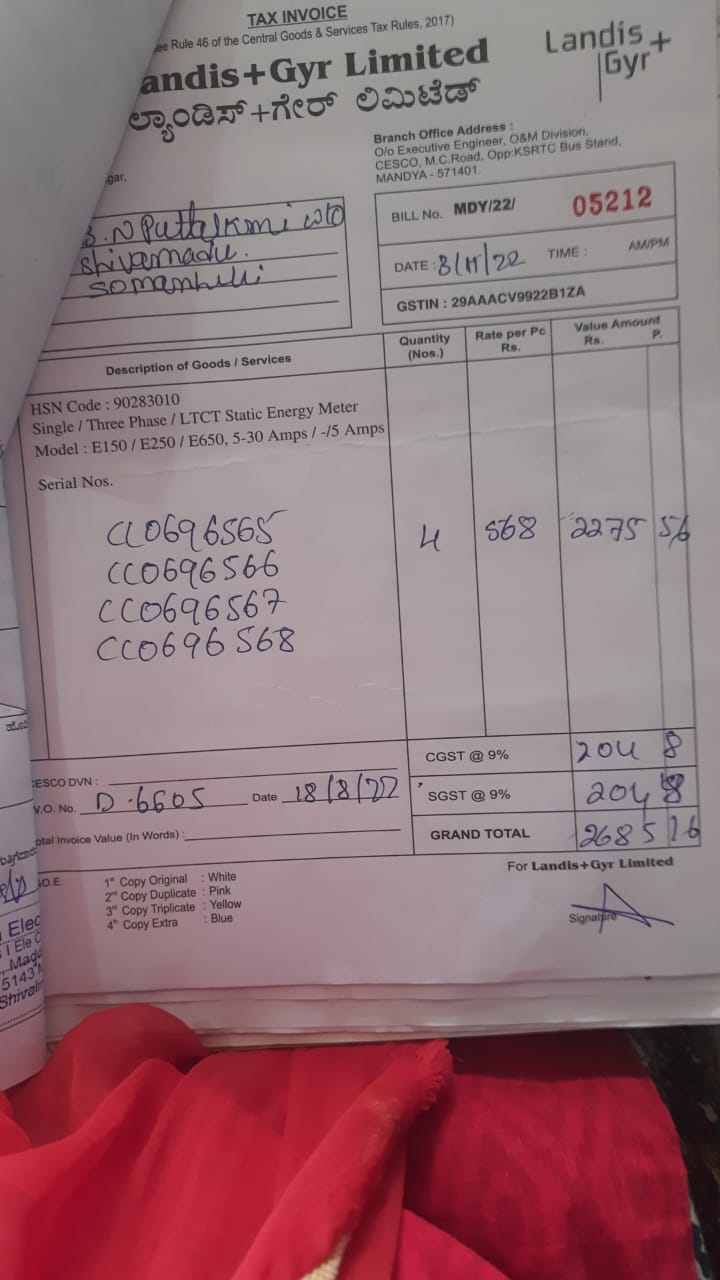 TAX INVOICE
ee Rule 46 of the Central Goods & Services Tax Rules, 2017)
andis+Gyr Limited
Landis+
Gyr
ಲ್ಯಾಂಡಿಸ್+ಗೇರ್ ಲಿಮಿಟೆಡ್
Branch Office Address :
O/o Executive Engineer, O&M Division,
CESCO, M.C.Road, Opp:KSRTC Bus Stand,
MANDYA - 571401.
gar,
BILL No. MDY/22/ 05212
DATE : 8/11/22 TIME : AM/PM
GSTIN : 29AAACV9922B1ZA
N Puttalkmi w/o
Shivamadu.
Somanhlli
Description of Goods / Services
Quantity
(Nos.)
Rate per Pc
Rs.
Value Amount
Rs. P.
HSN Code : 90283010
Single / Three Phase / LTCT Static Energy Meter
Model : E150 / E250 / E650, 5-30 Amps / -/5 Amps
Serial Nos.
CC0696565 4 568 2275 56
CC0696566
CC0696567
CC0696568
CGST @ 9% 204 8
SGST @ 9% 204 8
GRAND TOTAL 2685 16
ESCO DVN :
V.O. No. D-6605 Date 18/8/22
otal Invoice Value (In Words) :
For Landis+Gyr Limited
.O.E.
1st Copy Original : White
2nd Copy Duplicate : Pink
3rd Copy Triplicate : Yellow
4th Copy Extra : Blue
Signature
Elec
5143
Shival